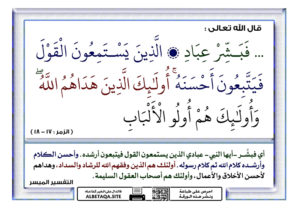 قال الله تعالى :
... فَبَشِّرْ عِبَادِ ۞ الَّذِينَ يَسْتَمِعُونَ الْقَوْلَ
فَيَتَّبِعُونَ أَحْسَنَهُ ۚ أُولَٰئِكَ الَّذِينَ هَدَاهُمُ اللَّهُ ۖ
وَأُولَٰئِكَ هُمْ أُولُو الْأَلْبَابِ
(الزمر: ١٧ - ١٨)
أي فبشّر -أيها النبي- عبادي الذين يستمعون القول فيتبعون أرشده. وأحسن الكلام
وأرشده كلام الله ثم كلام رسوله. أولئك هم الذين وفقهم الله للرشاد والسداد، وهداهم
لأحسن الأخلاق والأعمال، وأولئك هم أصحاب العقول السليمة.
التفسير الميسر
احرص على طباعة
ونشر هذه البطاقة
ALBETAQA.SITE